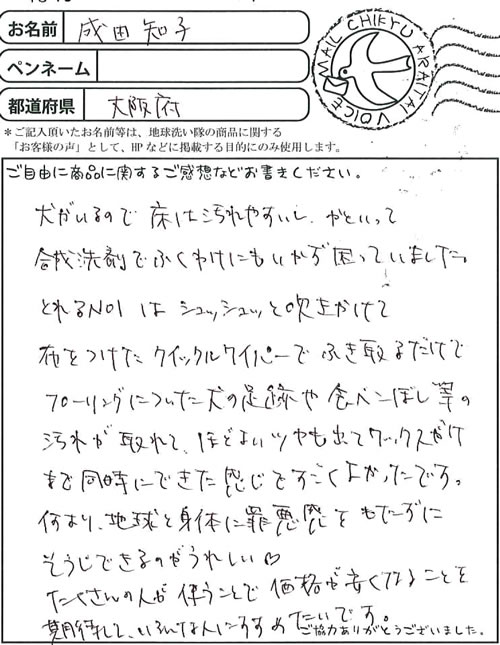 お名前 成田 知子
ペンネーム
都道府県 大阪府
MAIL CHIKYU ARAITAI VOICE
*ご記入頂いたお名前等は、地球洗い隊の商品に関する
「お客様の声」として、HPなどに掲載する目的にのみ使用します。
ご自由に商品に関するご感想などお書きください。
犬がいるので床は汚れやすいし、かといって
合成洗剤でふくわけにもいかず困っていました。
とれるNO1はシュッシュッと吹きかけて
布をつけたクイックルワイパーでふき取るだけで
フローリングについた犬の足跡や食べこぼし等の
汚れが取れて、ほどよいツヤも出てワックスがけ
まで同時にできた感じですごくよかったです。
何より、地球と身体に罪悪感をもたずに
そうじできるのがうれしい♡
たくさんの人が使うことで価格が安くなることを
期待して、いろんな人にすすめたいです。
ご協力ありがとうございました。